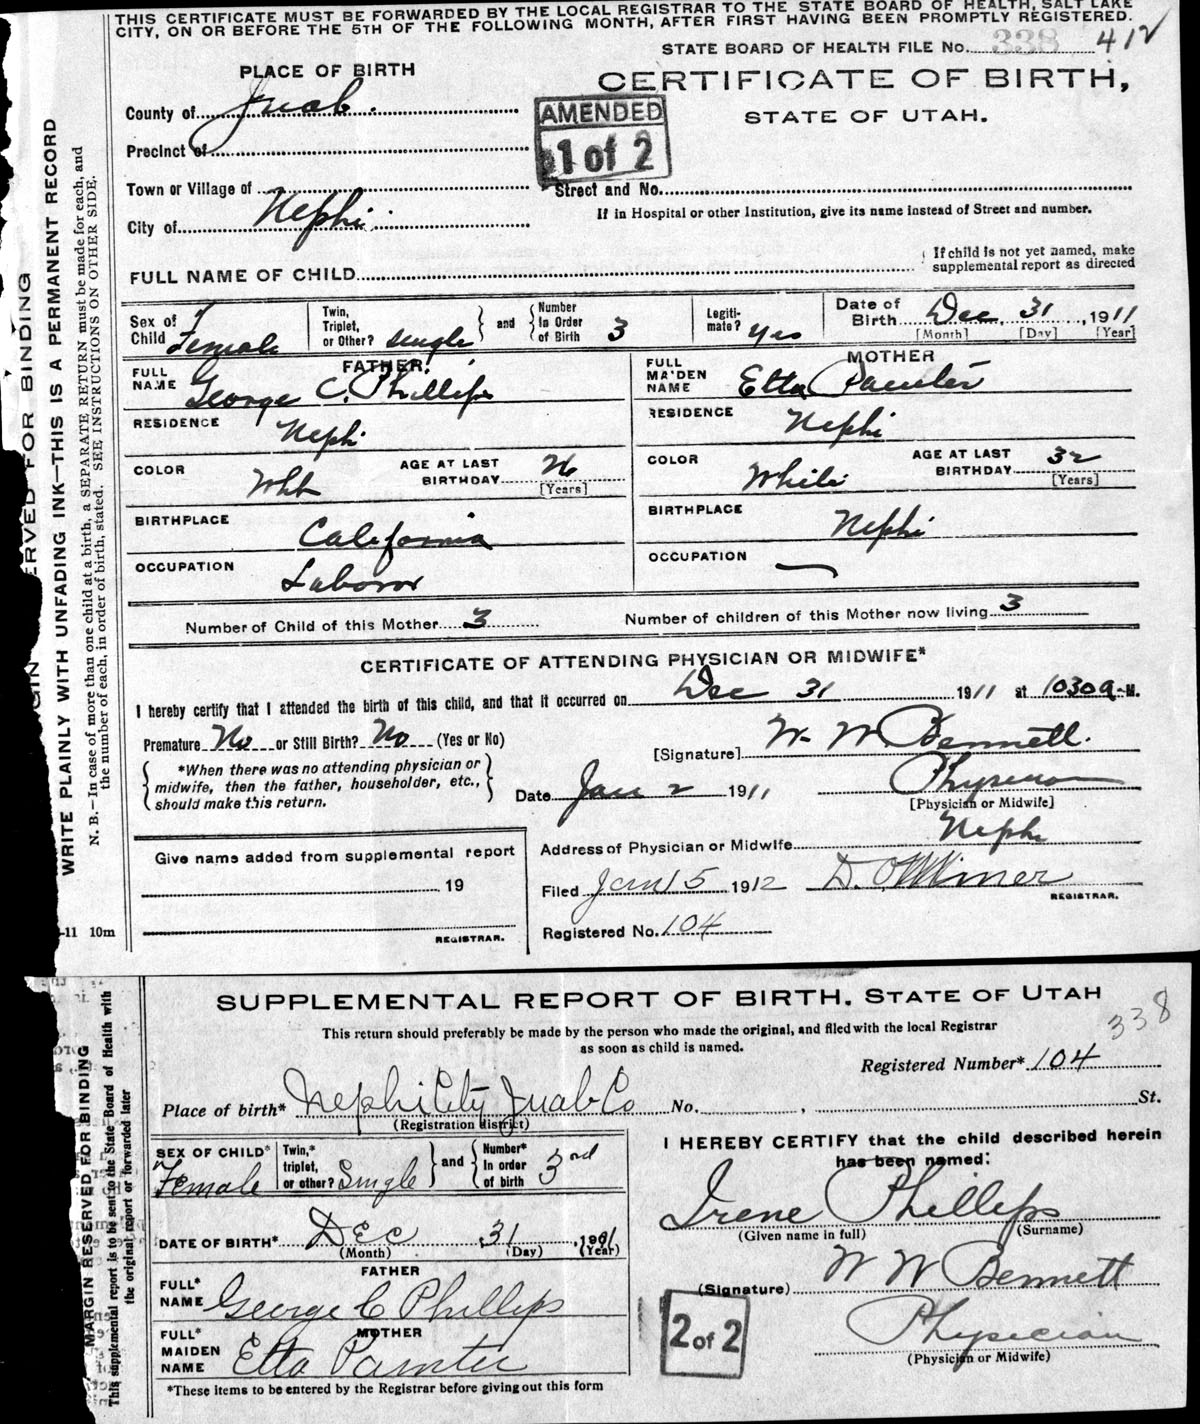 THIS CERTIFICATE MUST BE FORWARDED BY THE LOCAL REGISTRAR TO THE STATE BOARD OF HEALTH, SALT LAKE
CITY, ON OR BEFORE THE 5TH OF THE FOLLOWING MONTH, AFTER FIRST HAVING BEEN PROMPTLY REGISTERED.
STATE BOARD OF HEALTH FILE No. 338 412
PLACE OF BIRTH
CERTIFICATE OF BIRTH,
STATE OF UTAH.
AMENDED
1 of 2
County of Juab.
Precinct of
Town or Village of
Street and No.
City of Nephi
If in Hospital or other Institution, give its name instead of Street and number.
FULL NAME OF CHILD
If child is not yet named, make
supplemental report as directed
Sex of Child Female
Twin, Triplet, or Other? single
and
Number In Order of Birth 3
Legiti-mate? Yes
Date of Birth Dec, 31, 1911
[Month] [Day] [Year]
FATHER.
FULL NAME George C. Phillips
RESIDENCE Nephi
COLOR Wht
AGE AT LAST BIRTHDAY 26
[Years]
BIRTHPLACE California
OCCUPATION Laboror
MOTHER
FULL MAIDEN NAME Etta Painter
RESIDENCE Nephi
COLOR White
AGE AT LAST BIRTHDAY 32
[Years]
BIRTHPLACE Nephi
OCCUPATION
Number of Child of this Mother 3
Number of children of this Mother now living 3
CERTIFICATE OF ATTENDING PHYSICIAN OR MIDWIFE*
I hereby certify that I attended the birth of this child, and that it occurred on Dec 31 1911 at 1030 a. M.
Premature No or Still Birth? No (Yes or No)
*When there was no attending physician or
midwife, then the father, householder, etc.,
should make this return.
[Signature] W. W. Bennett.
Date Jan 2 1911
Physician
[Physician or Midwife]
Address of Physician or Midwife Nephi
Give name added from supplemental report
19
REGISTRAR.
Filed Jan 15 1912
Miner
REGISTRAR.
Registered No. 104
-11 10m
WRITE PLAINLY WITH UNFADING INK—THIS IS A PERMANENT RECORD
N. B.—In case of more than one child at a birth, a SEPARATE RETURN must be made for each, and
the number of each, in order of birth, stated. SEE INSTRUCTIONS ON OTHER SIDE.
ERVED FOR BINDING
SUPPLEMENTAL REPORT OF BIRTH. STATE OF UTAH
This return should preferably be made by the person who made the original, and filed with the local Registrar
as soon as child is named.
338
Registered Number* 104
Place of birth* Nephi City Juab Co No. , St.
(Registration district)
SEX OF CHILD* Female
Twin,* triplet, or other? Single
and
Number* In order of birth 3rd
DATE OF BIRTH* DEC 31, 1911
(Month) (Day) (Year)
FATHER
FULL* NAME George C Phillips
MOTHER
FULL* MAIDEN NAME Etta Painter
*These items to be entered by the Registrar before giving out this form
I HEREBY CERTIFY that the child described herein
has been named:
Irene Phillips
(Given name in full) (Surname)
(Signature) W W Bennett
Physician
(Physician or Midwife)
2 of 2
MARGIN RESERVED FOR BINDING
This supplemental report is to be sent to the State Board of Health with
the original report or forwarded later